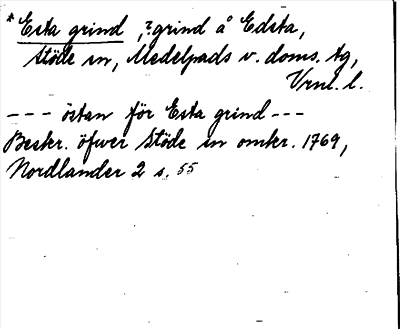 *Esta grind, ? grind å Edsta,
Stöde sn, Medelpads v. doms. tg,
Vrnl. l.
--- östan för Esta grind ---
Beskr. öfwer Stöde sn omkr. 1769,
Nordlander 2 s. 55